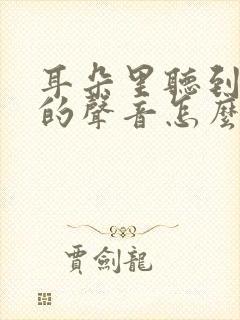 耳朵里聽到
的聲音怎麼
賈劍龍